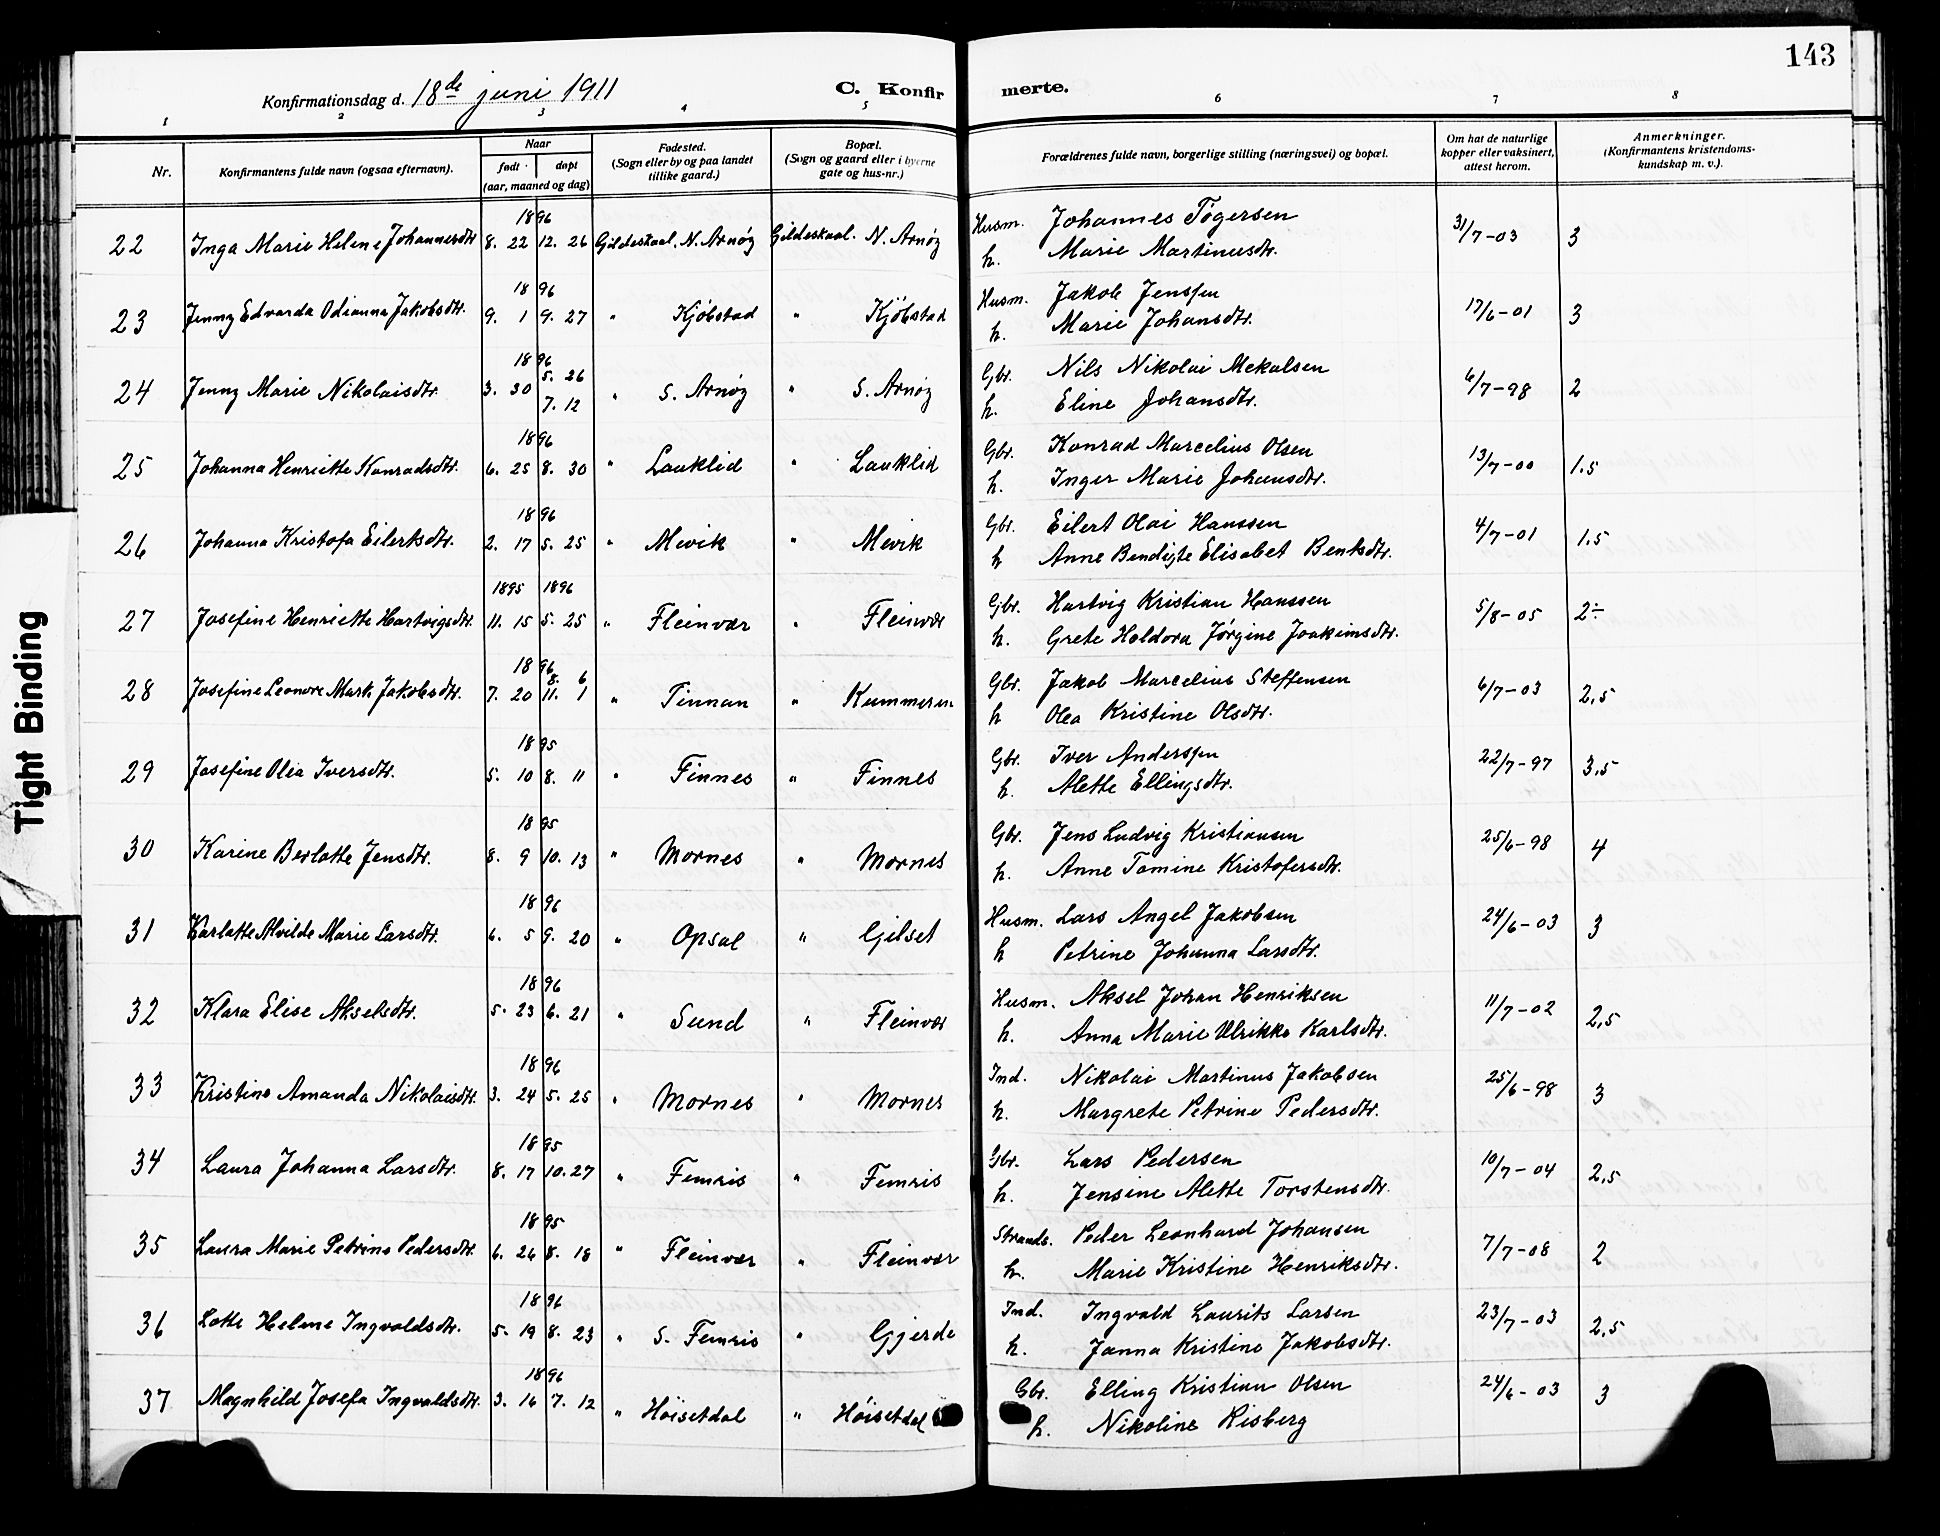 143
Konfirmationsdag d. 18de juni 1911
C. Konfirmerte.
1 2 3 4 5 6 7 8
Nr. Konfirmantens fulde navn (ogsaa efternavn). Naar født døpt (aar, maaned og dag) Fødested. (Sogn eller by og paa landet tillike gaard.) Bopæl. (Sogn og gaard eller i byerne gate og hus-nr.) Forældrenes fulde navn, borgerlige stilling (næringsvei) og bopæl. Om hat de naturlige kopper eller vaksinert, attest herom. Anmerkninger. (Konfirmantens kristendomskundskap m. v.).
1896
22 Inga Marie Helene Johannesdtr. 8. 22 12. 26 Gildeskaal. N. Arnøy Gildeskaal. N. Arnøy Husm. Johannes Tøgersen 31/7-03 3
h. Marie Martinusdtr.
1896
23 Jenny Edvarda Odianna Jakobsdtr. 9. 1 9. 27 " Kjøbstad " Kjøbstad Husm. Jakob Jenssen 17/6-01 3
h. Marie Johansdtr.
1896
24 Jenny Marie Nikolaisdtr. 3. 30 5. 26 7. 12 " S. Arnøy " S. Arnøy Gbr. Nils Nikolai Mekalsen 6/7-98 2
h. Eline Johansdtr.
1896
25 Johanna Henriette Konradsdtr. 6. 25 8. 30 " Lauklid " Lauklid Gbr. Konrad Marcelius Olsen 13/7-00 1.5
h. Inger Marie Johansdtr.
1896
26 Johanna Kristofa Eilertsdtr. 2. 17 5. 25 " Mevik " Mevik Gbr. Eilert Olai Hanssen 4/7-01 1.5
h Anne Bendigte Elisabet Bentsdtr.
1895 1896
27 Josefine Henriette Hartvigsdtr. 11. 15 5. 25 " Fleinvær " Fleinvær Gbr. Hartvig Kristian Hanssen 5/8-05 2÷
h. Grete Haldora Jørgine Joakimsdtr.
1896
28 Josefine Leonore Mark. Jakobsdtr. 7. 20 8. 6 11. 1 " Finnan " Kummeren Gbr. Jakob Marcelius Steffensen 6/7-03 2,5
h Olea Kristine Olsdtr.
1895
29 Josefine Olea Iversdtr. 5. 10 8. 11 " Finnes " Finnes Gbr. Iver Anderssen 22/7-97 3.5
h. Alette Ellingsdtr.
1895
30 Karine Berlatte Jensdtr. 8. 9 10. 13 " Mornes " Mornes Gbr. Jens Ludvig Kristiansen 25/6-98 4
h. Anne Tomine Kristofersdtr.
1896
31 Karlatte Alvilde Marie Larsdtr. 6. 5 9. 20 " Opsal " Gilset Husm. Lars Angel Jakobsen 24/6-03 3
h Petrine Johanna Larsdtr.
1896
32 Klara Elise Akselsdtr. 5. 23 6. 21 " Sund " Fleinvær Husm. Aksel Johan Henriksen 11/7-02 2,5
h. Anna Marie Ulrikke Karlsdtr.
1896
33 Kristine Amanda Nikolaisdtr. 3. 24 5. 25 " Mornes " Mornes Ind. Nikolai Martinus Jakobsen 25/6-98 3
h. Margrete Petrine Pedersdtr.
1895
34 Laura Johanna Larsdtr. 8. 17 10. 27 " Femris " Femris Gbr. Lars Pedersen 10/7-04 2,5
h. Jensine Alette Torstensdtr.
1895
35 Laura Marie Petrine Pedersdtr. 6. 26 8. 18 " Fleinvær " Fleinvær Strands. Peder Leonhard Johansen 7/7-08 2
h. Marie Kristine Henriksdtr.
1896
36 Lotte Helene Ingvaldsdtr. 5. 19 8. 23 " S. Femris " Gjerde Ind. Ingvald Laurits Larsen 23/7-03 2,5
h. Janna Kristine Jakobsdtr.
1896
37 Magnhild Josefa Ingvaldsdtr. 3. 16 7. 12 " Høisetdal " Høisetdal Gbr. Elling Kristian Olsen 24/6-03 3
h. Nikoline Risberg
Tight Binding